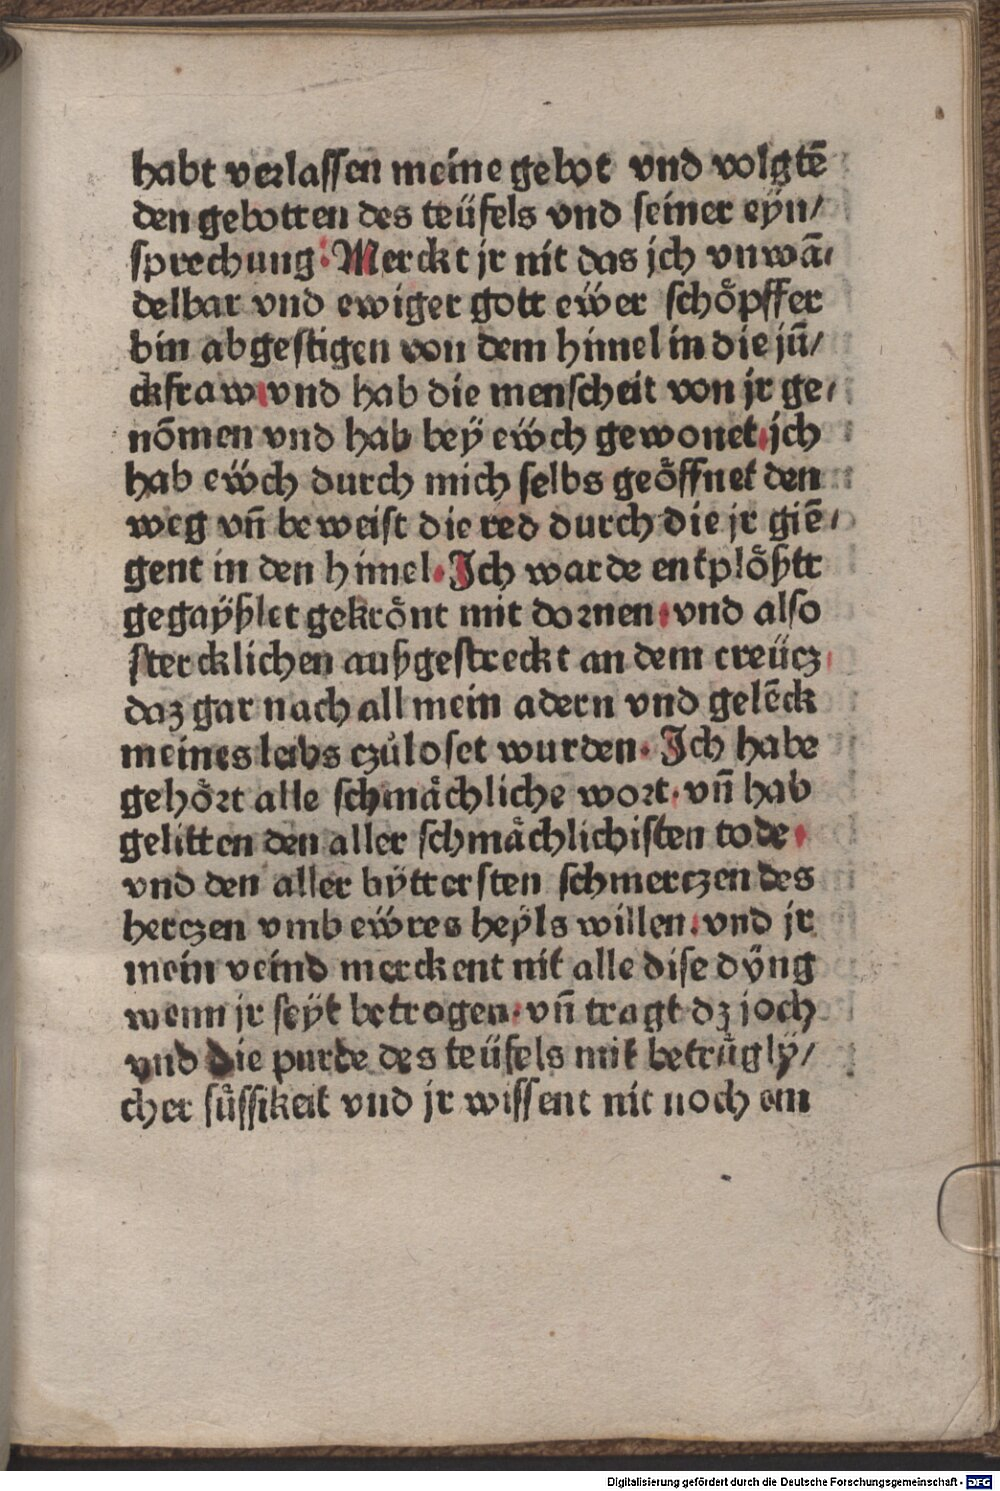 habt verlassen meine gebot vnd volgtē
den gebotten des teüfels vnd seiner eyn/
sprechung. Merckt jr nit das jch vnwā/
delbar vnd ewiger gott ewer schöpffer
bin abgestigen von dem himel in die jū/
ckfraw vnd hab die menscheit von jr ge/
nōmen vnd hab beÿ eẅch gewonet. jch
hab eẅch durch mich selbs geöffnet den
weg vn̄ beweist die red durch die jr giē/
gent in den himel. Ich warde entplößtt
gegaÿßlet gekrönt mit dornen. vnd also
stercklichen außgestreckt an dem creücz
daz gar nach all mein adern vnd gelēck
meines leibs czůloset wurden. Ich habe
gehört alle schmächliche wort. vn̄ hab
gelitten den aller schmächlichisten tode.
vnd den aller bÿttersten schmerczen des
herczen vmb eẅres heÿls willen. vnd jr
mein veind merckent nit alle dise dÿng
wenn jr seÿt betrogen. vn̄ tragt dz joch
vnd die purde des teüfels mit betrüglÿ/
cher süssikeit vnd jr wissent nit noch em
Digitalisierung gefördert durch die Deutsche Forschungsgemeinschaft - DFG